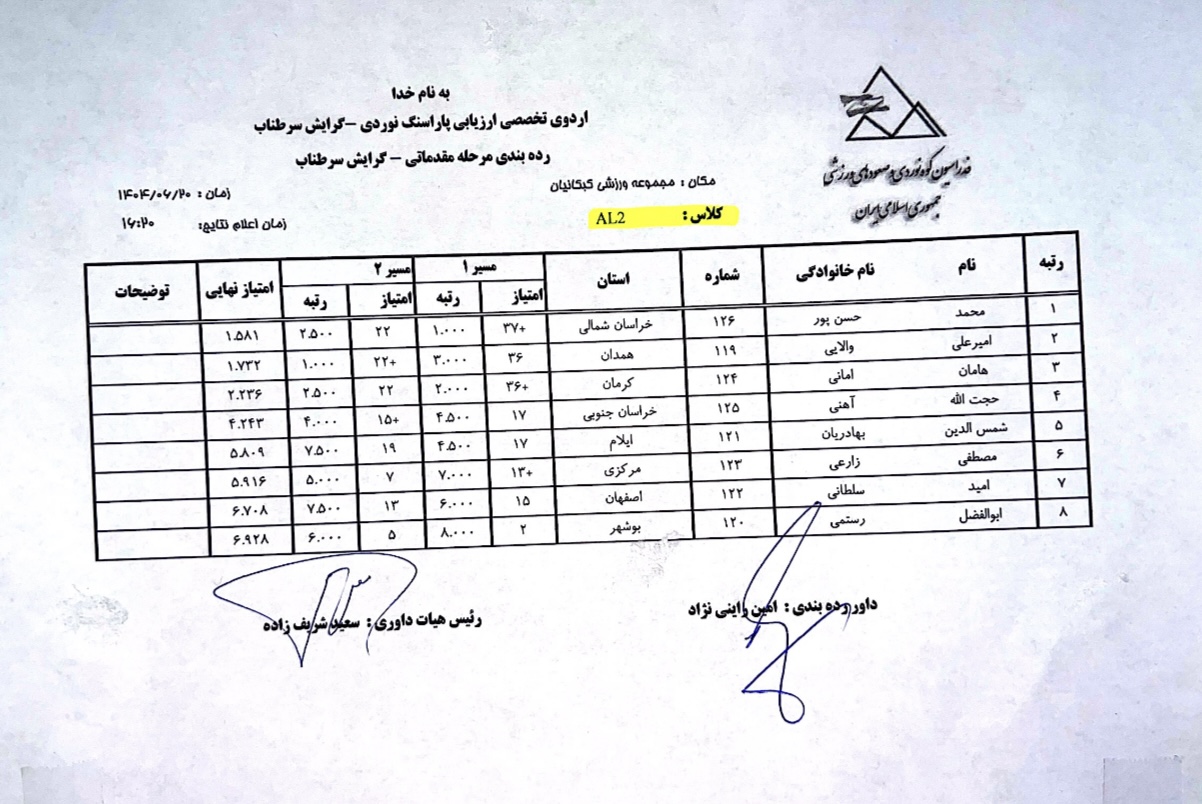 به نام خدا
اردوی تخصصی ارزیابی پاراسنگ نوردی –گرایش سرطناب
رده بندی مرحله مقدماتی – گرایش سرطناب
فدراسیون کوه‌نوردی و صعودهای ورزشی
جمهوری اسلامی ایران
مکان : مجموعه ورزشی کبکانیان
زمان : ۱۴۰۴/۰۶/۲۰
کلاس : AL2
زمان اعلام نتایج: ۱۶:۲۰
رتبه نام نام خانوادگی شماره استان مسیر ۱ مسیر ۲ امتیاز نهایی توضیحات
امتیاز رتبه امتیاز رتبه
۱ محمد حسن پور ۱۲۶ خراسان شمالی ۳۷+ ۱.۰۰۰ ۲۲ ۲.۵۰۰ ۱.۵۸۱
۲ امیرعلی والایی ۱۱۹ همدان ۳۶ ۳.۰۰۰ ۲۲+ ۱.۰۰۰ ۱.۷۳۲
۳ هامان امانی ۱۲۴ کرمان ۳۶+ ۲.۰۰۰ ۲۲ ۲.۵۰۰ ۲.۲۳۶
۴ حجت الله آهنی ۱۲۵ خراسان جنوبی ۱۷ ۴.۵۰۰ ۱۵+ ۴.۰۰۰ ۴.۲۴۳
۵ شمس الدین بهادریان ۱۲۱ ایلام ۱۷ ۴.۵۰۰ ۱۹ ۷.۵۰۰ ۵.۸۰۹
۶ مصطفی زارعی ۱۲۳ مرکزی ۱۳+ ۷.۰۰۰ ۷ ۵.۰۰۰ ۵.۹۱۶
۷ امید سلطانی ۱۲۲ اصفهان ۱۵ ۶.۰۰۰ ۱۳ ۷.۵۰۰ ۶.۷۰۸
۸ ابوالفضل رستمی ۱۲۰ بوشهر ۲ ۸.۰۰۰ ۵ ۶.۰۰۰ ۶.۹۲۸
داور رده بندی : امین راینی نژاد
رئیس هیات داوری : سعید شریف زاده